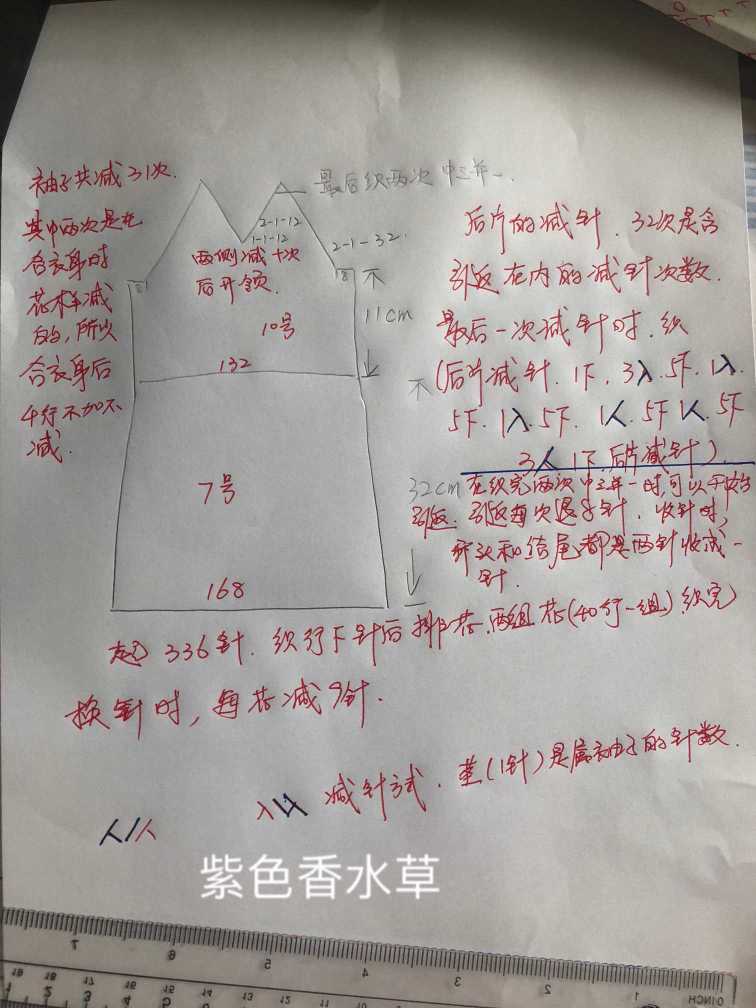 袖子共减31次.
其中两次是在
合衣身时
花样减
的,所以
合衣身后
4行不加不
减.
最后织两次中三并一.
2-1-12
1-1-12
2-1-32.
两侧减十次
后开领.
8
8
不
11cm
10号
132
不
7号
32cm
168
后片的减针.32次是含
引返在内的减针次数.
最后一次减针时.织
(后片减针.1下.3入.5下.1入.
5下.1入.5下.1人.5下1人.5下
3人1下.后片减针)
在织完两次中三并一时,可以开始
引返.引返每次退8针.收针时,
开头和结尾都是两针收成一
针.
起336针.织行下针后排花.两组花(40行一组)织完
换针时,每花减9针.
人/人
入 减针方式.茎(1针)是属袖子的针数.
紫色香水草
7
6
5
4
3
2
1
0 INCH
19
18
17
16
15
14
13
12
11
10